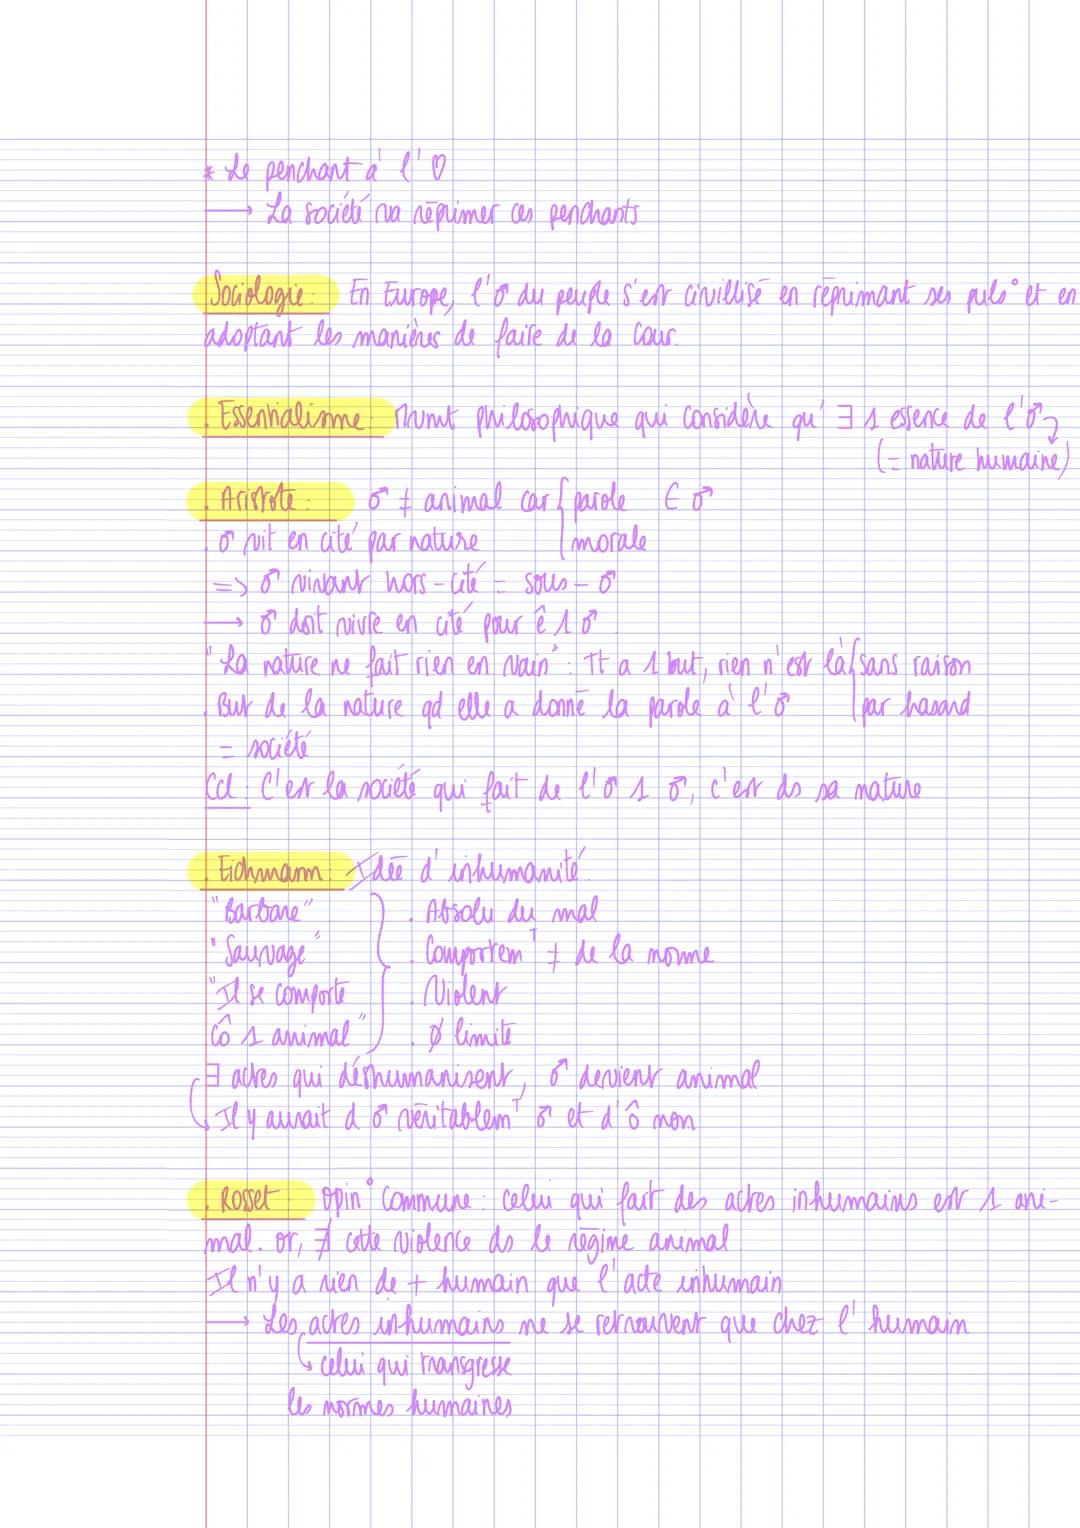 * Le penchant à l'♡
→ La société va réprimer ces penchants
Sociologie : En Europe, l'♂ du peuple s'est civillisé en réprimant ses puls° et en
adoptant les manières de faire de la cour.
. Essentialisme : Mvmt philosophique qui considère qu'∃ 1 essence de l'♂
(= nature humaine)
. Aristote : ♂ ≠ animal car { parole ∈ ♂
. ♂ vit en cité par nature { morale
=> ♂ vivant hors-cité = sous-♂
→ ♂ doit vivre en cité pour ê 1 ♂.
"La nature ne fait rien en vain" : Tt a 1 but, rien n'est là { sans raison
. But de la nature qd elle a donné la parole à l'♂ { par hasard
= société
Ccl : C'est la société qui fait de l'♂ 1 ♂, c'est ds sa nature
. Eichmann : Idée d'inhumanité.
"Barbare" } . Absolu du mal
"Sauvage" . Comportemᵀ ≠ de la norme
"Il se comporte . Violent
cô 1 animal" . Ø limite
∃ actes qui déshumanisent, ♂ devient animal
↳ Il y aurait d ♂ véritablemᵀ ♂ et d'ô non
. Rosset : Opin° commune : celui qui fait des actes inhumains est 1 ani-
mal. or, ∄ cette violence ds le régime animal
Il n'y a rien de + humain que l'acte inhumain
→ Les actes inhumains ne se retrouvent que chez l'humain
↳ celui qui transgresse
les normes humaines